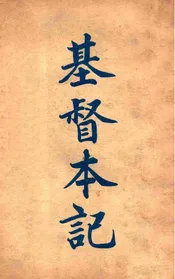 基督本記